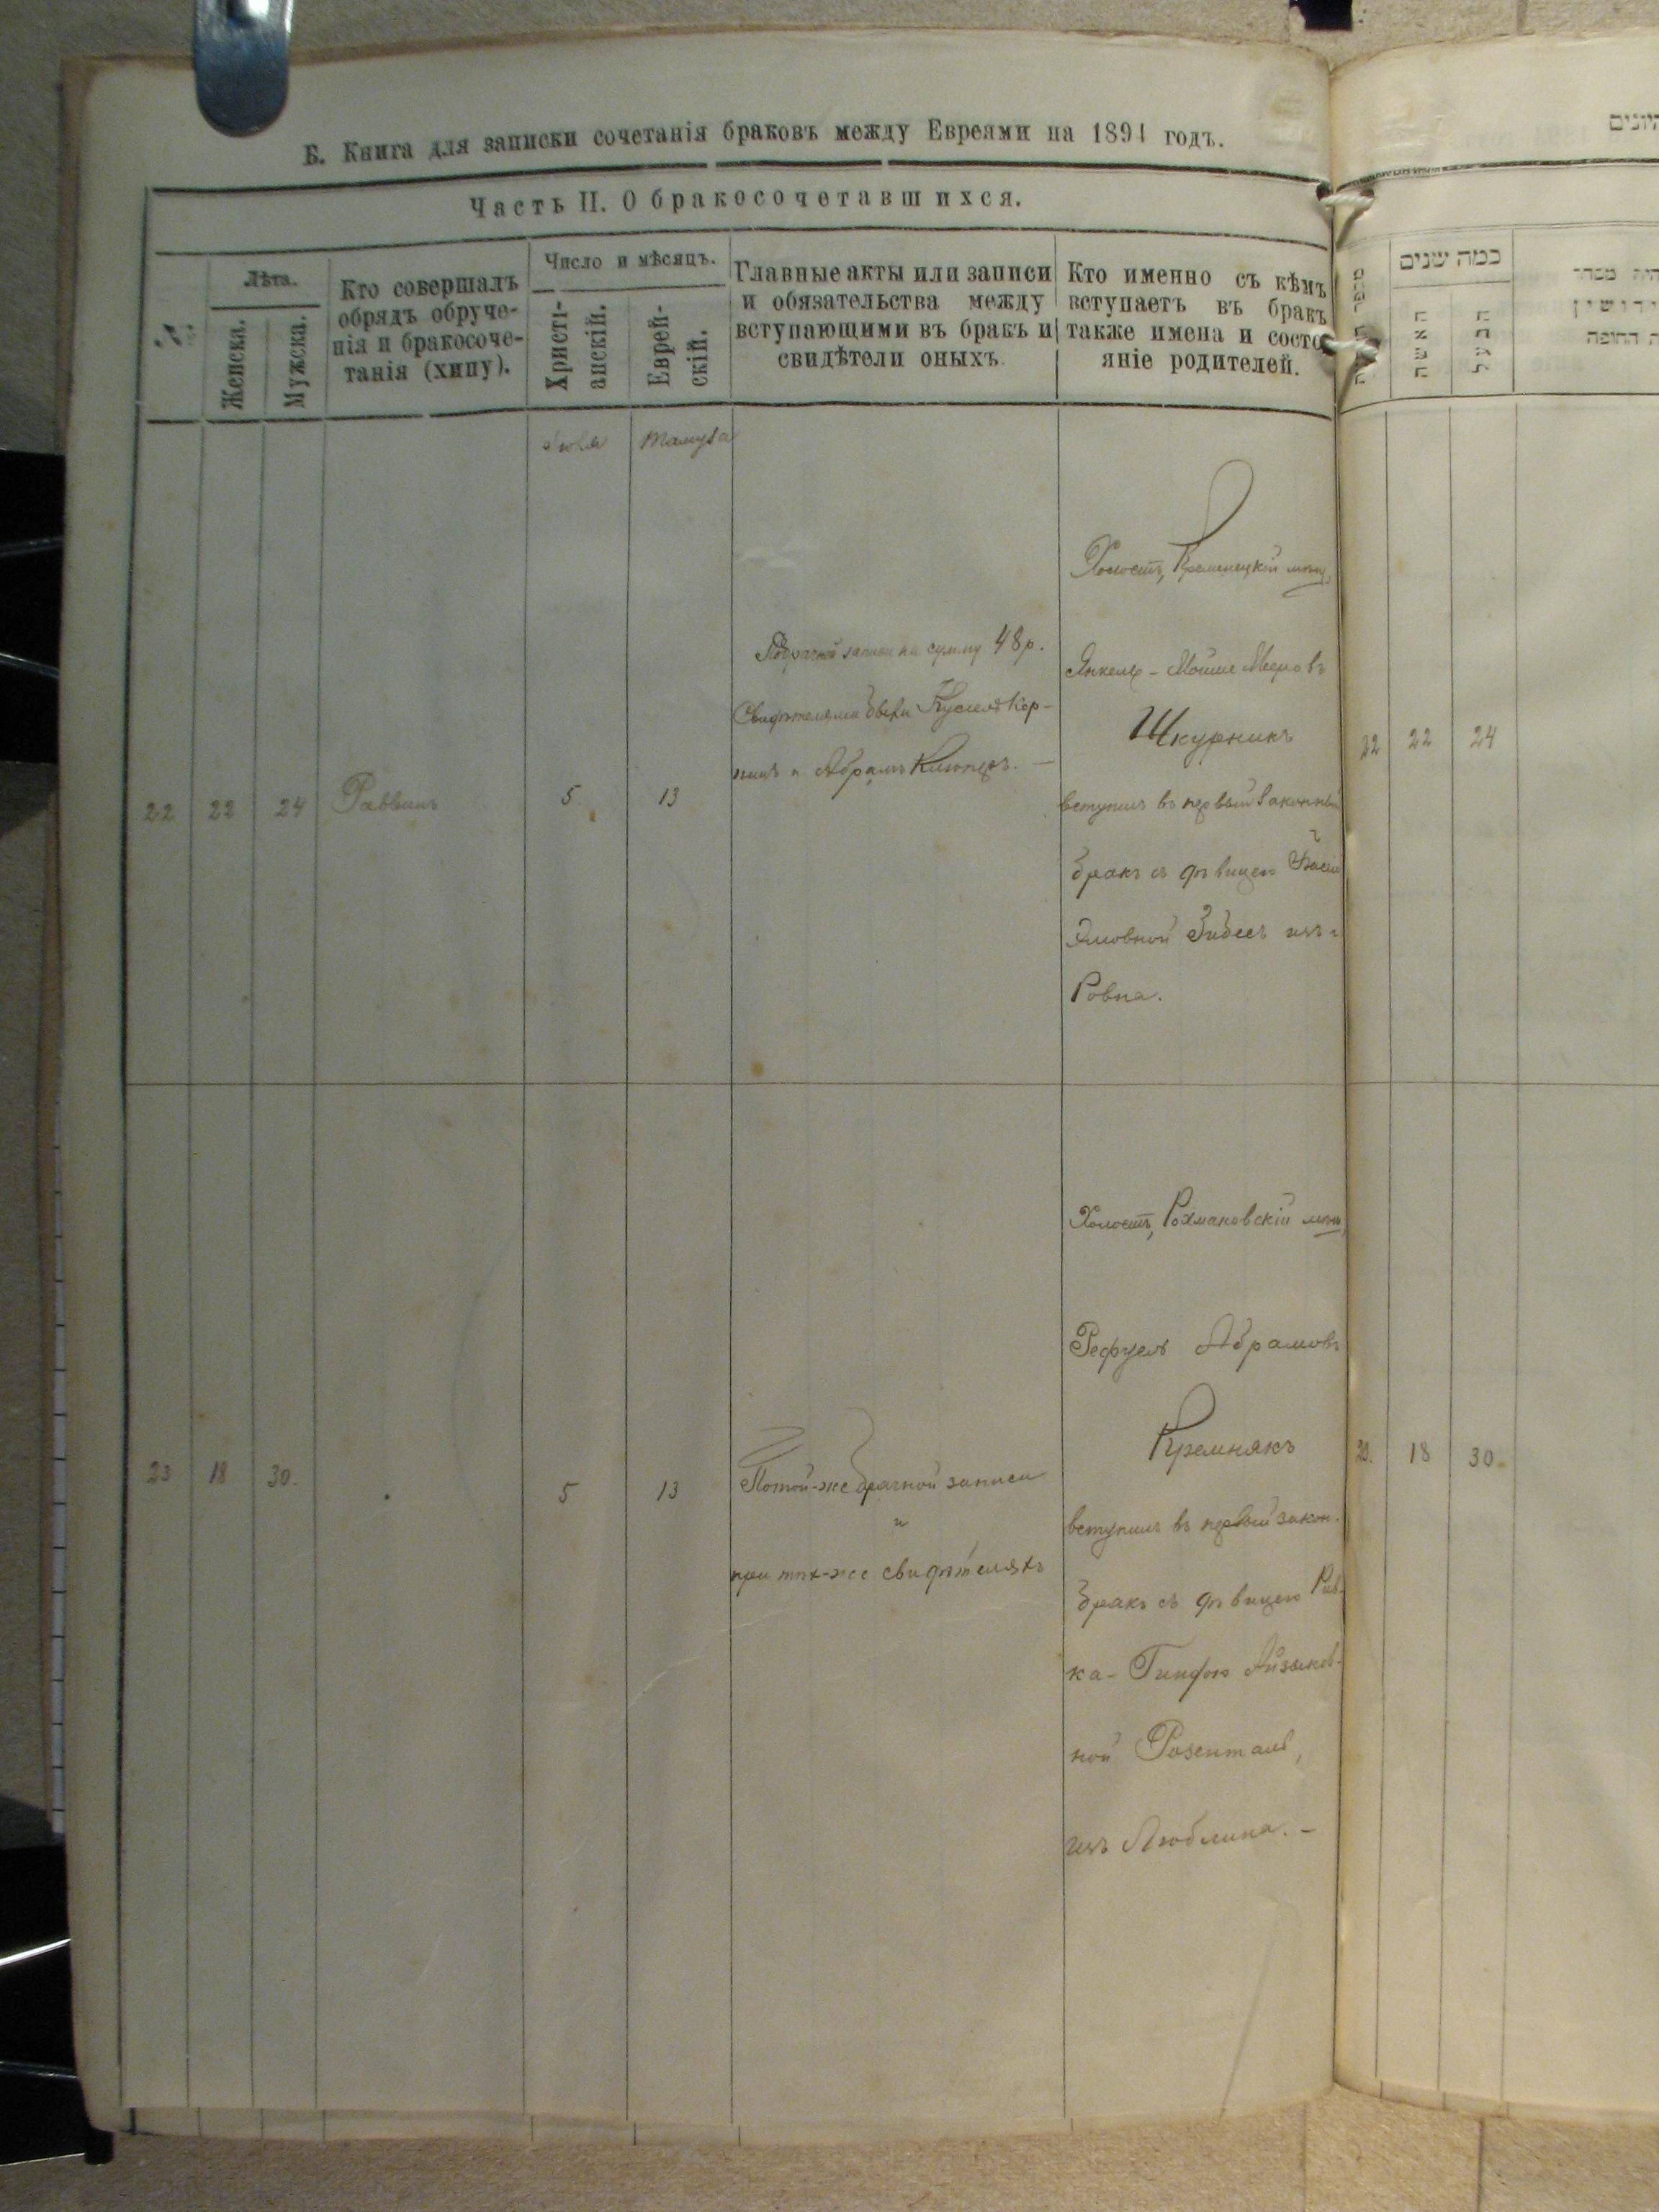 Б. Книга для записки сочетанія браковъ между Евреями на 1894 годъ.
Часть II. О бракосочетавшихся.
№
Лѣта.
Женска.
Мужска.
Кто совершалъ
обрядъ обруче-
нія и бракосоче-
танія (хипу).
Число и мѣсяцъ.
Христі-
анскій.
Еврей-
скій.
Главные акты или записи
и обязательства между
вступающими въ бракъ и
свидѣтели оныхъ.
Кто именно съ кѣмъ
вступаетъ въ бракъ
также имена и состо
яніе родителей.
Іюля
Тамуза
22
22
24
Раввинъ
5
13
записи на сумму 48 р.
Свидѣтелями были Кор-
и Абрамъ
Холостъ, Кременецкій мѣщ.
Янкель-Мойше Мееровъ
Шкурникъ
вступилъ въ первый законный
бракъ съ дѣвицею
изъ г.
Ровна.
23
18
30.
5
13
По той-же брачной записи
и
при тѣх-же свидѣтеляхъ
Холостъ, Рохмановскій мѣщ.
Рефуель Абрамовъ
Кремнякъ
вступилъ въ первый закон.
бракъ съ дѣвицею Рив-
ка-Гинфою Айзыков-
ной Розенталь,
изъ Люблина. —
כמה שנים
האשה
הבעל
ה החופה
22
22
24
23.
18
30